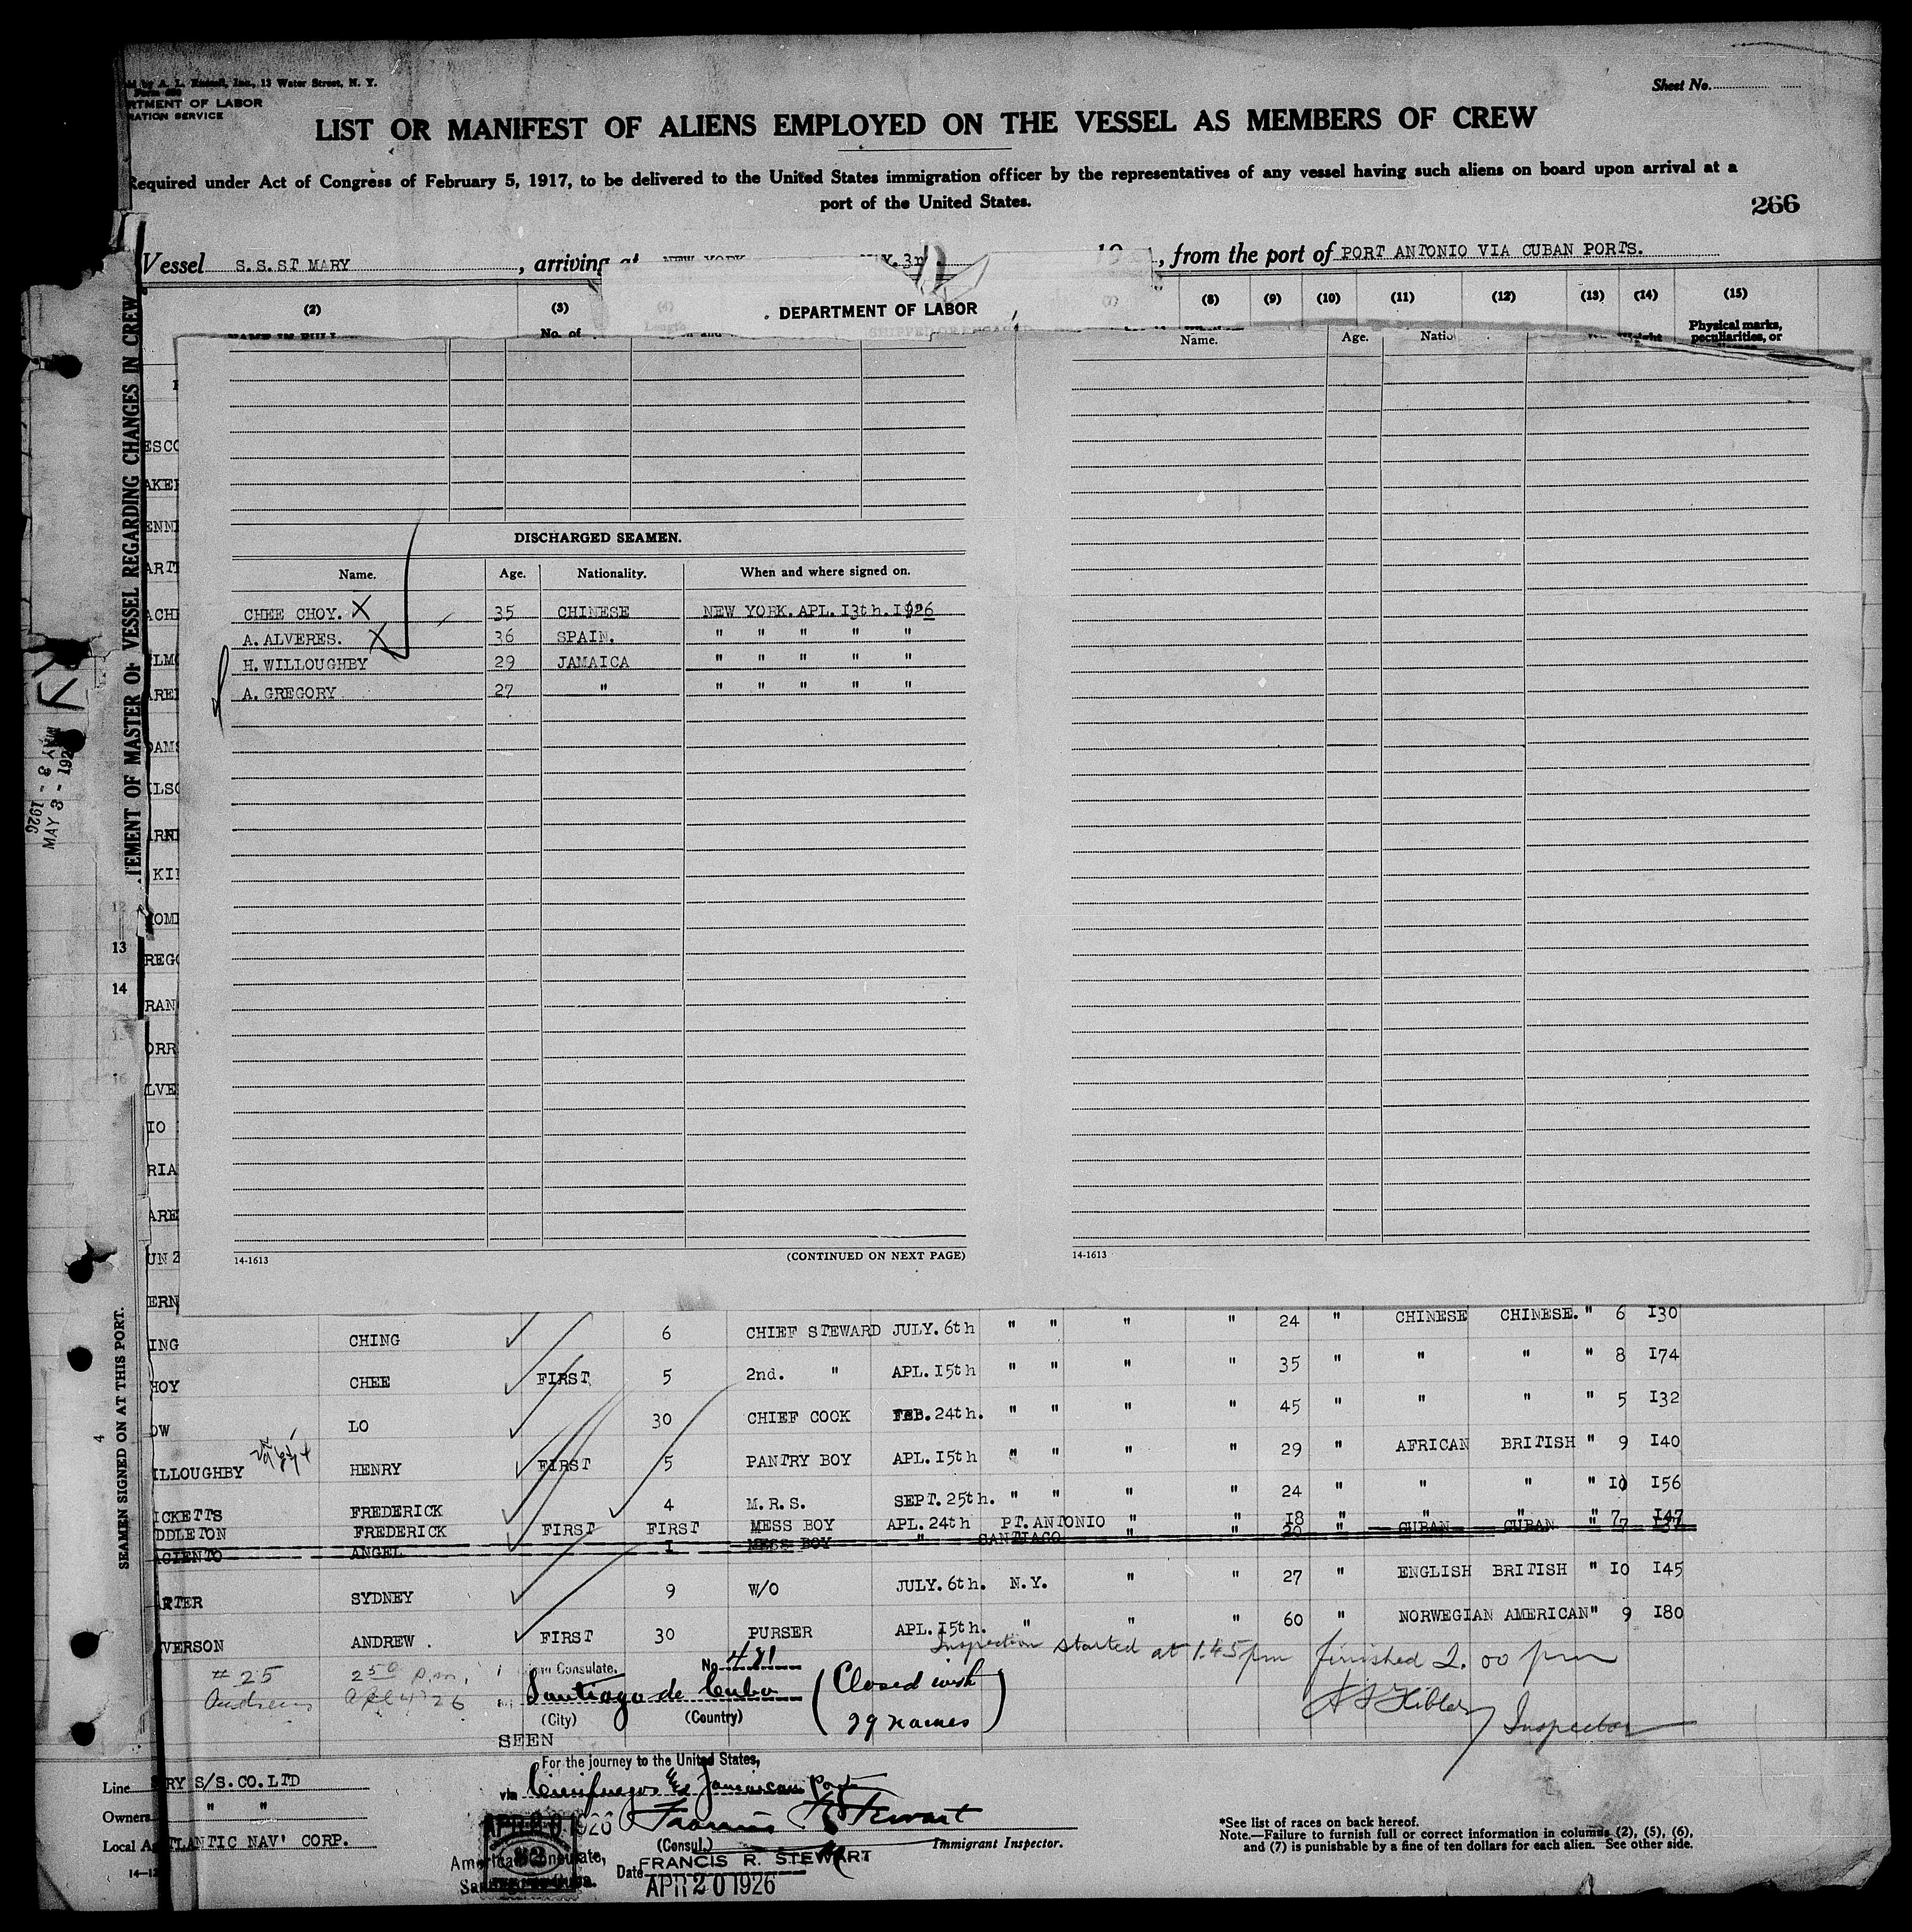 ld by A. L. Russell, Inc., 13 Water Street, N. Y.
RTMENT OF LABOR
RATION SERVICE
Sheet No.
LIST OR MANIFEST OF ALIENS EMPLOYED ON THE VESSEL AS MEMBERS OF CREW
Required under Act of Congress of February 5, 1917, to be delivered to the United States immigration officer by the representatives of any vessel having such aliens on board upon arrival at a
port of the United States.
266
Vessel S.S.ST MARY, arriving at NEW YORK 19 , from the port of PORT ANTONIO VIA CUBAN PORTS.
(2) (3) (4) (7) (8) (9) (10) (11) (12) (13) (14) (15)
DEPARTMENT OF LABOR
No. of
Physical marks,
peculiarities, or
Name. Age. Natio
TEMENT OF MASTER OF VESSEL REGARDING CHANGES IN CREW
DISCHARGED SEAMEN.
Name. Age. Nationality. When and where signed on.
CHEE CHOY. X 35 CHINESE NEW YORK. APL. 13th. 1926
A. ALVERES. X 36 SPAIN. " " " " "
H. WILLOUGHBY 29 JAMAICA " " " " "
A. GREGORY 27 " " " " " "
MAY 3 - 192
MAY 3 - 1926
ESCO
AKER
ENNI
ARTI
ACHE
ELMO
AREI
DAMS
ILSO
ARNE
KIN
12
OMI
13
REGO
14
RAN
ORR
16
LVE
IO
RIA
ARE
UNZ
ERN
14-1613 (CONTINUED ON NEXT PAGE) 14-1613
SEAMEN SIGNED ON AT THIS PORT.
4
ING CHING 6 CHIEF STEWARD JULY. 6th " " " " 24 " CHINESE CHINESE. " 6 130
HOY CHEE FIRST 5 2nd. " APL. 15th " " " " 35 " " " " 8 174
OW LO 30 CHIEF COOK FEB. 24th. " " " " 45 " " " " 5 132
ILLOUGHBY HENRY FIRST 5 PANTRY BOY APL. 15th " " " " 29 " AFRICAN BRITISH " 9 140
ICKETTS FREDERICK 4 M.R.S. SEPT. 25th. " " " " 24 " " " " 10 156
DDLETON FREDERICK FIRST FIRST MESS BOY APL. 24th PT. ANTONIO " " 18 " " " " 7 147
ACIENTO ANGEL 1 MESS BOY " SANTIAGO " " 20 " CUBAN CUBAN " 7
ARTER SYDNEY 9 W/O JULY. 6th. N.Y. " " 27 " ENGLISH BRITISH " 10 145
VERSON ANDREW . FIRST 30 PURSER APL. 15th. " " " 60 " NORWEGIAN AMERICAN " 9 180
Inspection started at 1.45 pm finished 2.00 pm
Inspector
# 25 2 50 p.m.
Consulate. No. 481
Santiago de Cuba
(City) (Country)
(Closed with
29 names)
SEEN
For the journey to the United States,
via Cienfuegos & Jamaican Ports
APR 20 1926
Francis R Stewart
(Consul.)
Immigrant Inspector.
FRANCIS R. STEWART
Date APR 20 1926
American Consulate,
Line RY S/S. CO. LTD
Owners " "
Local A TLANTIC NAV' CORP.
*See list of races on back hereof.
Note.—Failure to furnish full or correct information in columns (2), (5), (6),
and (7) is punishable by a fine of ten dollars for each alien. See other side.